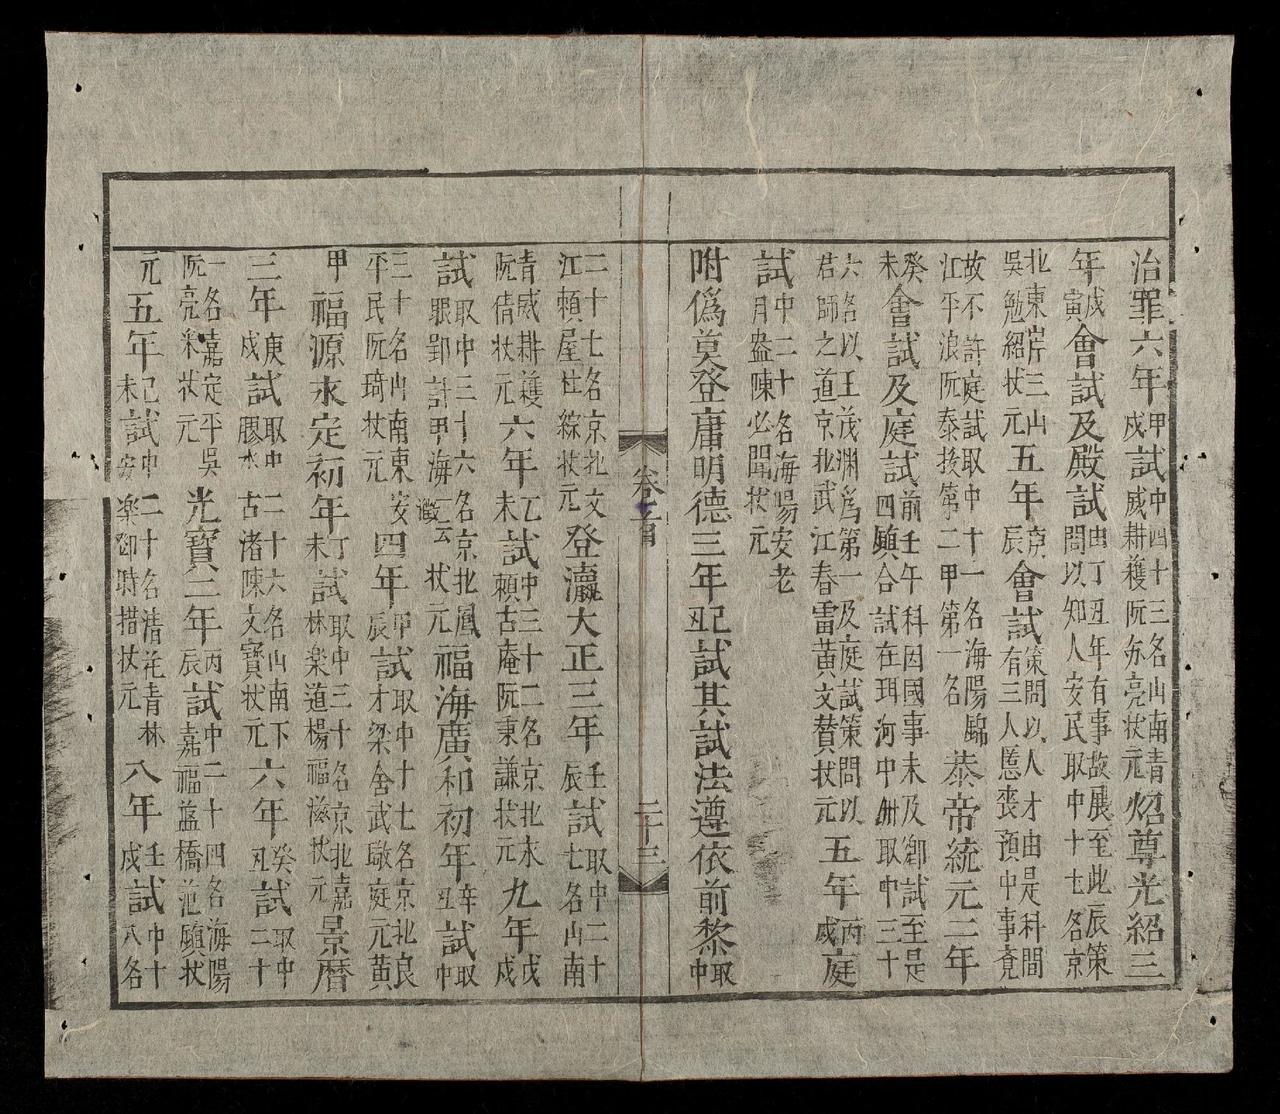 治罪六年甲戌試中四十三名山南青威耕穫阮芴亮状元炤尊光紹三
年戊寅會試及殿試由丁丑年有事故展至此辰策問以知人安民取中十七名京
北東岸三山吳勉紹状元五年庚辰會試策問以人才由是科間有三人慝丧預中事竟
故不許庭試取中十一名海陽錦江平浪阮泰拔第二甲第一名恭帝統元二年
癸未會試及庭試前壬午科因國事未及鄉試至是四鎮合試在珥河中洲取中三十
六名以王茂渊為第一及庭試策問以君師之道京北武江春雷黄文賛状元五年丙戌庭
試中二十名海陽安老月盎陳必聞状元
附偽莫登庸明德三年己丑試其試法遵依前黎取中
卷之首
二十三
二十七名京北文江頼屋杜綜状元登瀛大正三年壬辰試取中二十七名山南
青威耕穫阮倩状元六年乙未試中三十二名京北末頼古庵阮秉謙状元九年戊戌
試取中三十六名京北鳳眼郢計甲海一云澂状元福海廣和初年辛丑試取中
三十名山南東安平民阮琦状元四年甲辰試取中十七名京北良才梁舍武敬庭元黄
甲福源永定初年丁未試取中三十名京北嘉林楽道楊福滋状元景暦
三年庚戌試取中二十六名山南下膠水古渚陳文寶状元六年癸丑試取中二十
一名嘉定平吳阮亮采状元光寶三年丙辰試中二十四名海陽嘉福藍橋范鎮状
元五年己未試中二十名清花青林安楽御時措状元八年壬戌試中十八名